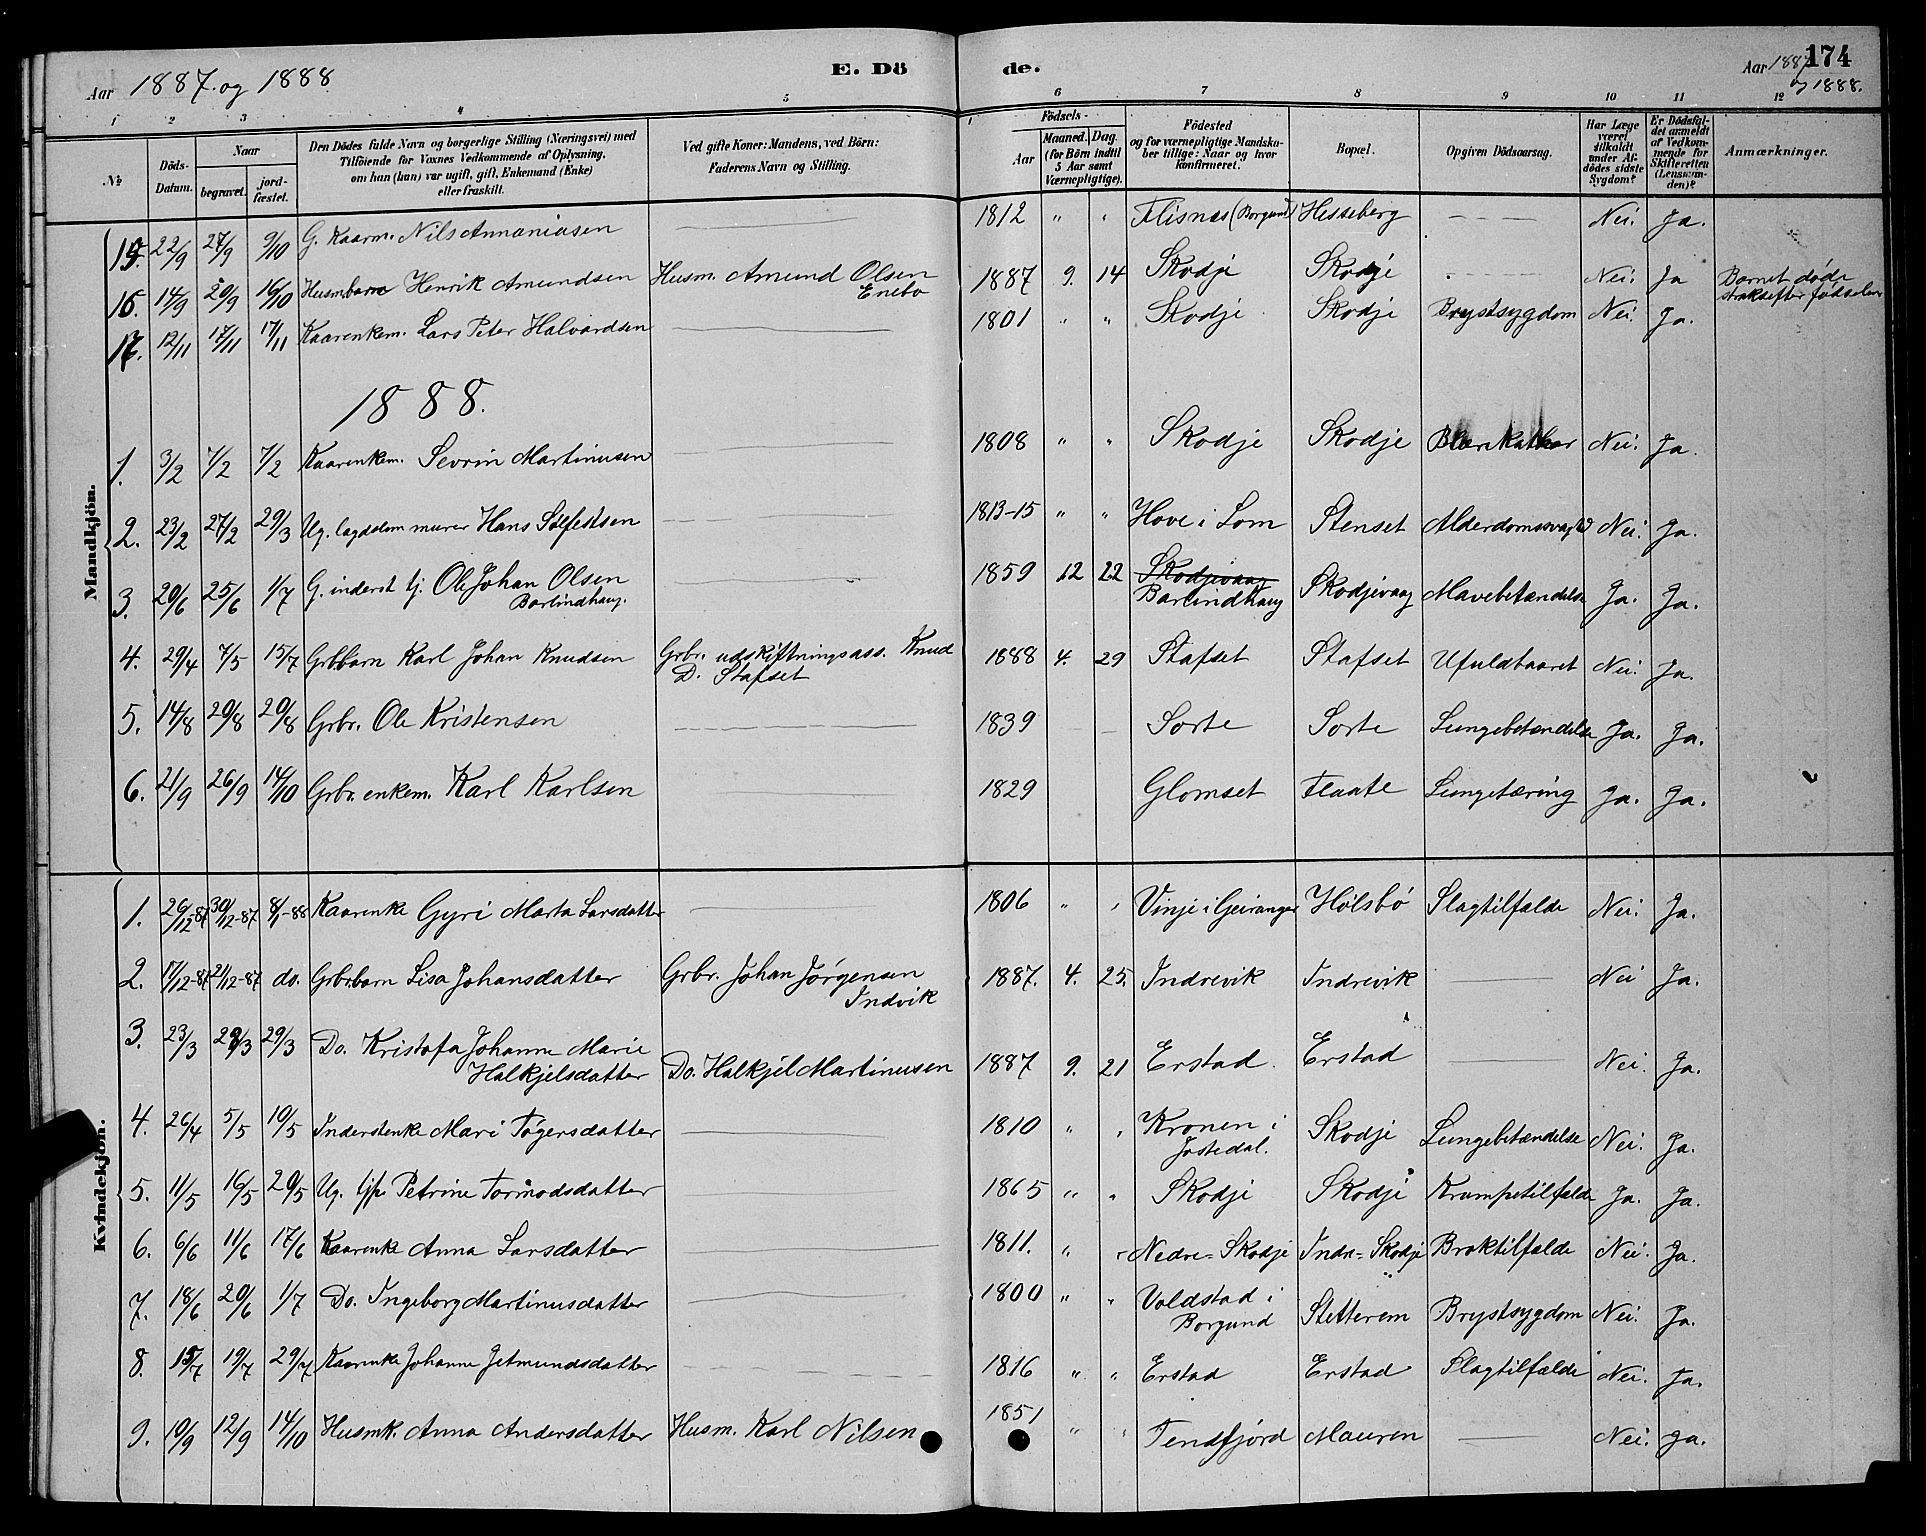 Aar 1887 og 1888 E. Dö de. Aar 1887 og 1888. 174
1 2 3 4 5 6 7 8 9 10 11 12
№ Döds-Datum. Naar begravet. jord-fæstet. Den Dödes fulde Navn og borgerlige Stilling (Næringsvei) med Tilföiende for Voxnes Vedkommende af Oplysning, om han (hun) var ugift, gift, Enkemand (Enke) eller fraskilt. Ved gifte Koner: Mandens, ved Börn: Faderens Navn og Stilling. Födsels- Aar Maaned. Dag. (for Börn indtil 5 Aar samt Værnepligtige). Födested og for værnepligtige Mandskaber tillige: Naar og hvor konfirmeret. Bopæl. Opgiven Dödsaarsag. Har Læge været tilkaldt under Afdödes sidste Sygdom? Er Dödsfaldet anmeldt af Vedkommende for Skifteretten (Lensmanden)? Anmærkninger.
Mandkjön.
15. 22/9 27/9 9/10 G. Kaarm. Nils Annaniasen 1812 " " Flisnes (Borgund) Hesseberg Nei. Ja.
16. 14/9 20/9 16/10 Husmbarn Henrik Amundsen Husm. Amund Olsen Enebo 1887 9. 14 Skodje Skodje Nei. Ja Barnet döde straks efter födselen
17. 12/11 17/11 17/11 Kaarenkem. Lars Peter Halvardsen 1801 " " Skodje Skodje Brystsygdom Nei. Ja.
1888.
1. 3/2 7/2 7/2 Kaarenkem. Sevrin Martinusen 1808 " " Skodje Skodje Blærekathar Nei. Ja.
2. 23/2 27/2 29/3 Ug. lagdslem murer Hans Stefestsen 1813-15 " " Hove i Lom Stenset Alderdomssvagh Nei. Ja.
3. 20/6 25/6 1/7 G. inderst tj. Ole Johan Olsen Barlindhaug. 1859 12 22 Skodjevaag Barlindhaug Skodjevaag Mavebetændelse Ja. Ja.
4. 29/4 7/5 15/7 Grbbarn Karl Johan Knudsen Grbr. udskiftningsass. Knud D. Stafset 1888 4. 29 Stafset Stafset Ufuldbaaret Nei. Ja.
5. 14/8 20/8 20/8 Grbr. Ole Kristensen 1839 Sorte Sorte Lungebetændelse Ja. Ja.
6. 21/9 26/9 14/10 Grbr. enkem. Karl Karlsen 1829 Glomset Flaate Lungetæring Ja. Ja.
Kvindekjön.
1. 26/12-87 30/12-87 8/1-88 Kaarenke Gyri Marta Larsdatter 1806 " " Vinje i Geiranger Hölsbö Slagtilfælde Nei. Ja.
2. 17/12-87 21/12-87 do. Grbrbarn Lisa Johansdatter Grbr. Johan Jörgensen Indvik 1887. 4. 25. Indrevik Indrevik Nei Ja.
3. 23/3 28/3 29/3 Do. Kristofa Johanne Marie Halkjelsdatter Do. Halkjel Martinusen 1887 9. 21 Erstad Erstad Nei. Ja.
4. 26/4 5/5 10/5 Inderstenke Mari Tögersdatter 1810 " " Kronen i Jostedal. Skodje Lungebetændelse Nei. Ja.
5. 11/5 16/5 20/5 Ug. tjp. Petrine Tormodsdatter 1865 " " Skodje Skodje Krampetilfælde Ja. Ja.
6. 6/6 11/6 17/6 Kaarenke Anna Larsdatter 1811. " " Nedre-Skodje Indre-Skodje Broktilfælde Nei. Ja.
7. 18/6 20/6 1/7 Do. Ingeborg Martinusdatter 1800 " " Voldstad i Borgund Stetterem Brystsygdom Nei. Ja.
8. 15/7 19/7 29/7 Kaarenke Johanne Jetmundsdatter 1816 " " Erstad Erstad Slagtilfælde Nei. Ja.
9. 10/9 12/9 14/10 Husmk. Anna Andersdatter Husm. Karl Nilsen 1851 " " Tendfjord Mauren Nei. Ja.